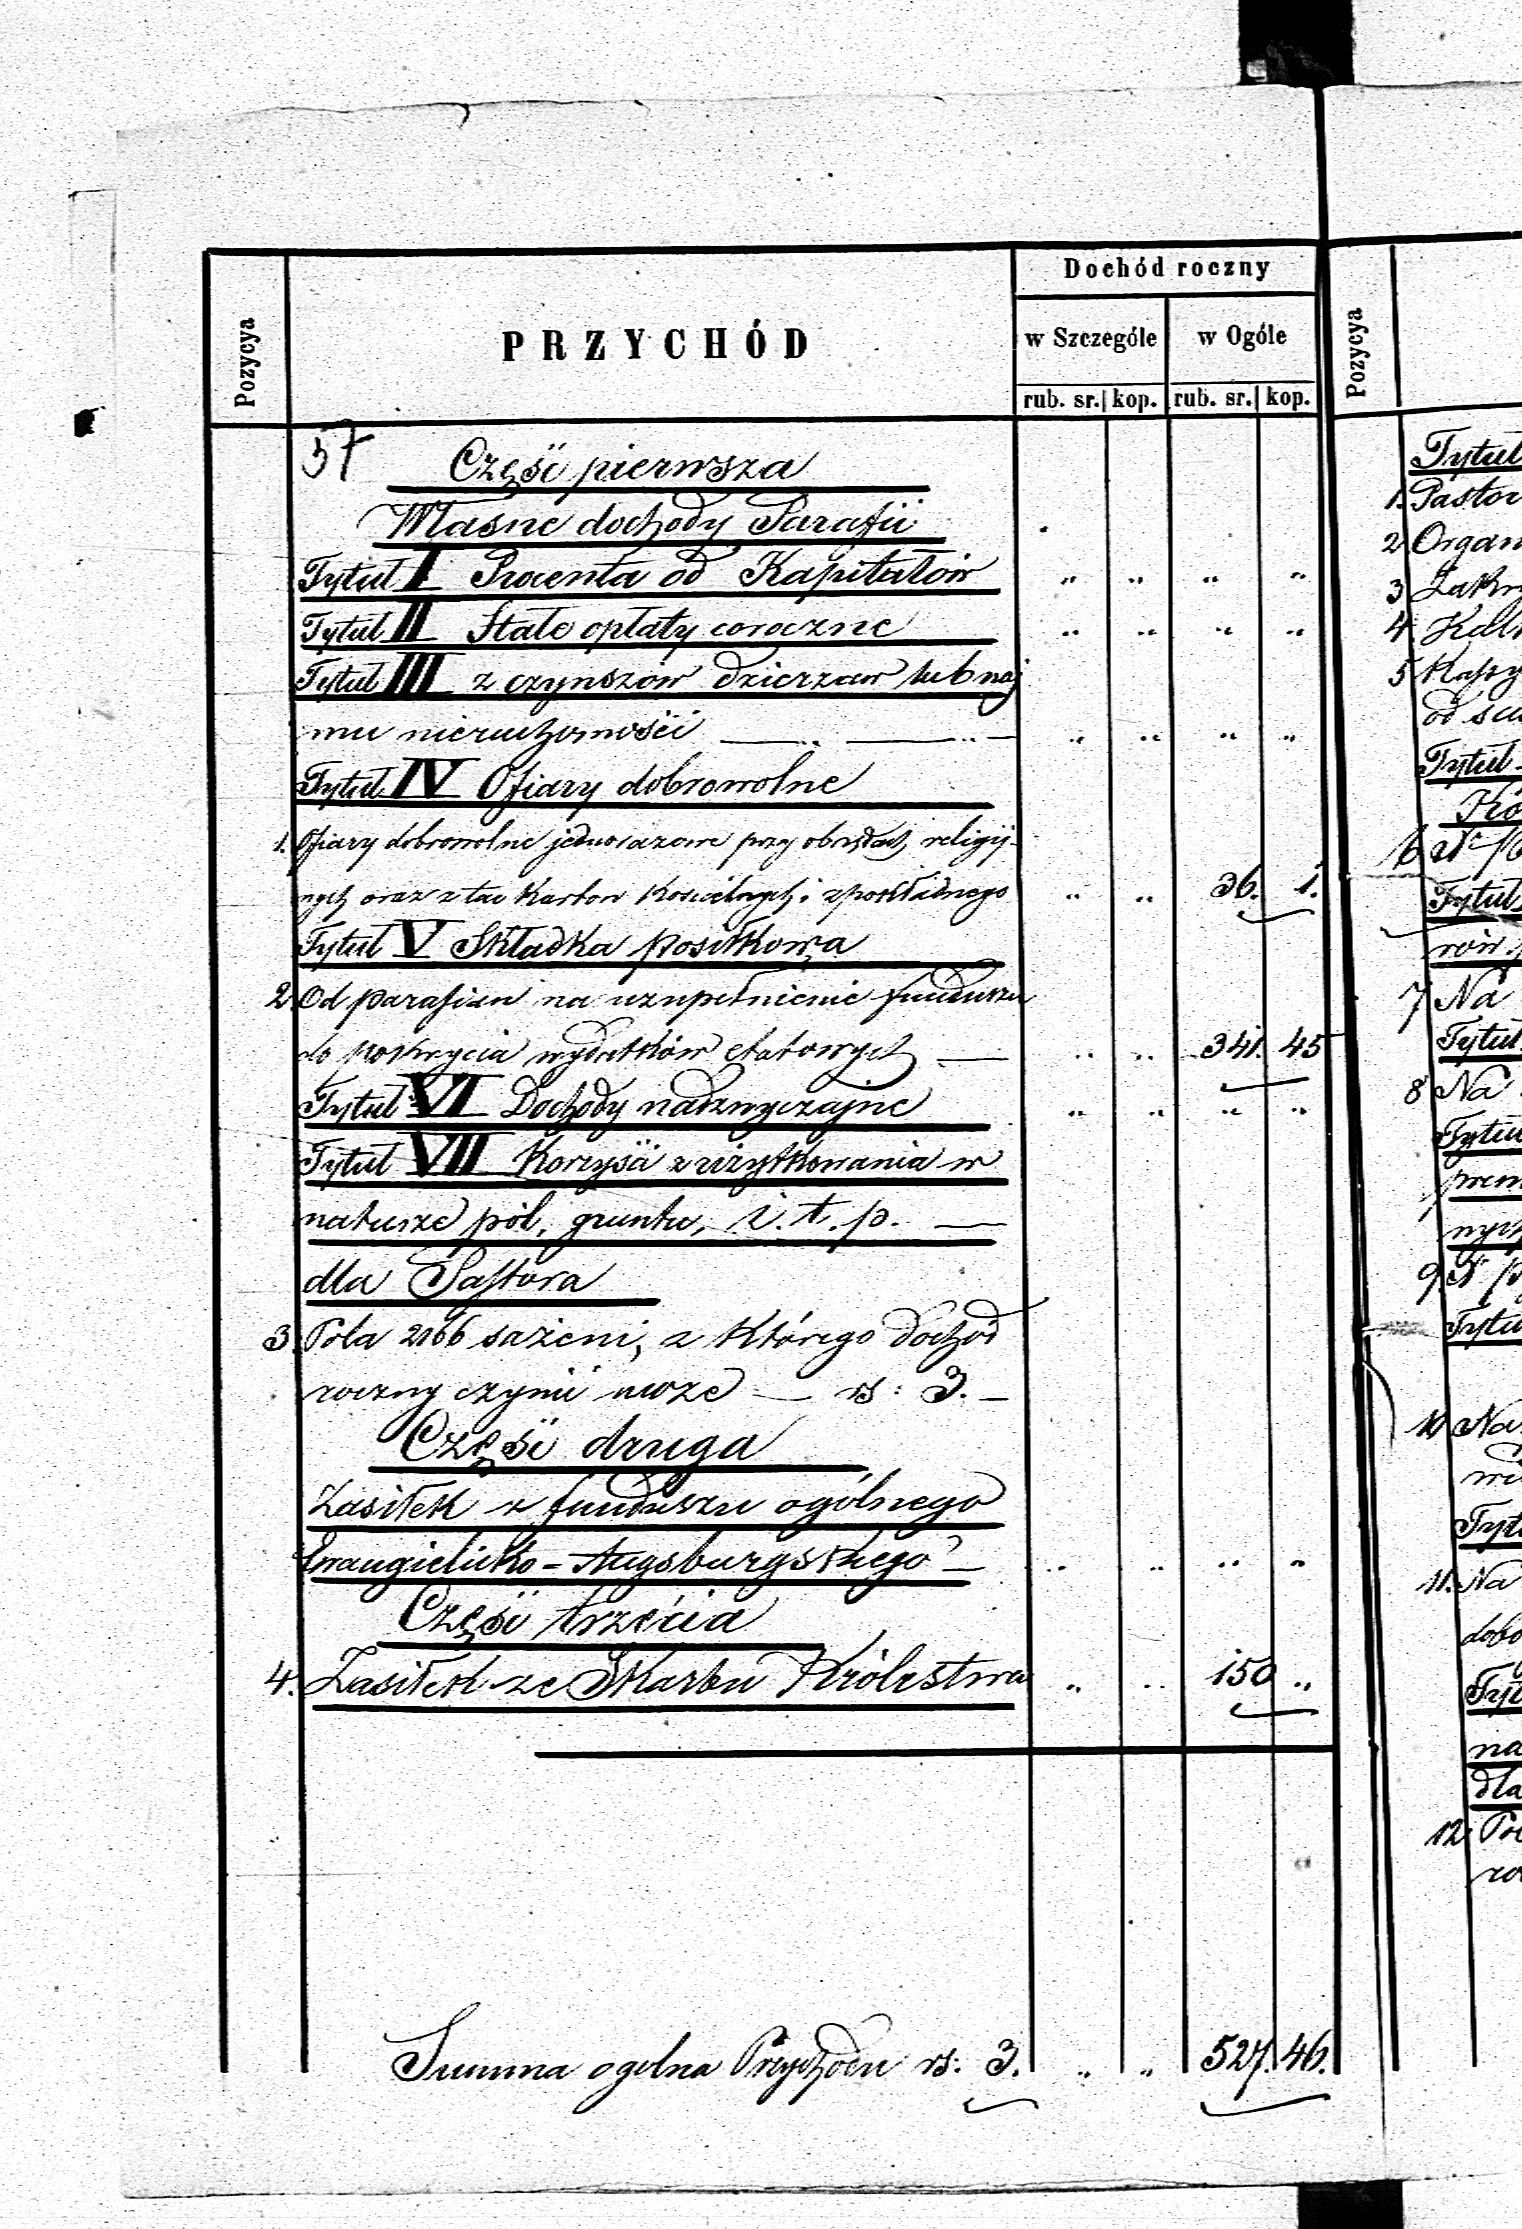 Dochód roczny
Pozycya
PRZYCHÓD
w Szczególe
w Ogóle
Pozycya
rub. sr. kop. rub. sr. kop.
37
Część pierwsza
Własne dochody Parafii
Tytuł I Procenta od Kapitałów „ „ „ „
Tytuł II Stałe opłaty coroczne „ „ „ „
Tytuł III z czynszów dzierzaw lub naj
mu nieruchomości — „ — „ — „ „ „ „
Tytuł IV Ofiary dobrowolne
1. Ofiary dobrowolne jednorazowe przy obrzędach religij-
nych oraz z tac Karbon Kościelnych i z pokładnego „ „ 36. 1.
Tytuł V Składka posiłkowa
2. Od parafian na uzupełnienie funduszu
do pokrycia wydatków etatowych — „ „ 341. 45
Tytuł VI Dochody nadzwyczajne „ „ „ „
Tytuł VII Korzyści z użytkowania w
naturze pól, gruntu, i. t. p. —
dla Pastora
3. Pola 2166 sażeni, z którego dochód
roczny czynić może — rs: 3. —
Część druga
Zasiłek z funduszu ogólnego
Ewangielicko - Augsburgskiego — „ „ „ „
Część trzecia
4. Zasiłek ze Skarbu Królestwa „ „ 150 „
Summa ogólna Przychodu rs: 3. „ „ 527. 46.
Tytuł
1. Pastor
2 Organ
3
4
5
od
Tytuł
6
Tytuł
7 Na
Tytuł
8 Na
Tytuł
9.
Tytu
10 Na
Tyt
11. Na
Tyt
na
dla
12